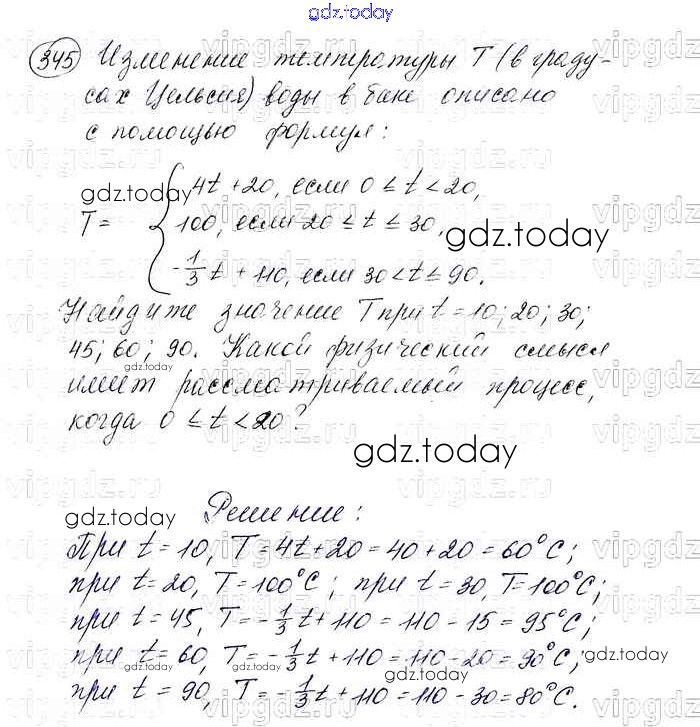 gdz.today
345 Изменение температуры T (в граду-
сах Цельсия) воды в баке описано
с помощью формул:
4t + 20, если 0 ≤ t < 20,
T = 100, если 20 ≤ t ≤ 30,
-1/3 t + 110, если 30 < t ≤ 90.
Найдите значение T при t = 10; 20; 30;
45; 60; 90. Какой физический смысл
имеет рассматриваемый процесс,
когда 0 ≤ t < 20?
Решение:
При t = 10, T = 4t + 20 = 40 + 20 = 60°C;
при t = 20, T = 100°C; при t = 30, T = 100°C;
при t = 45, T = -1/3 t + 110 = 110 - 15 = 95°C;
при t = 60, T = -1/3 t + 110 = 110 - 20 = 90°C;
при t = 90, T = -1/3 t + 110 = 110 - 30 = 80°C.
gdz.today
gdz.today
gdz.today
gdz.today
gdz.today
gdz.today
gdz.today
gdz.today
vipgdz.ru